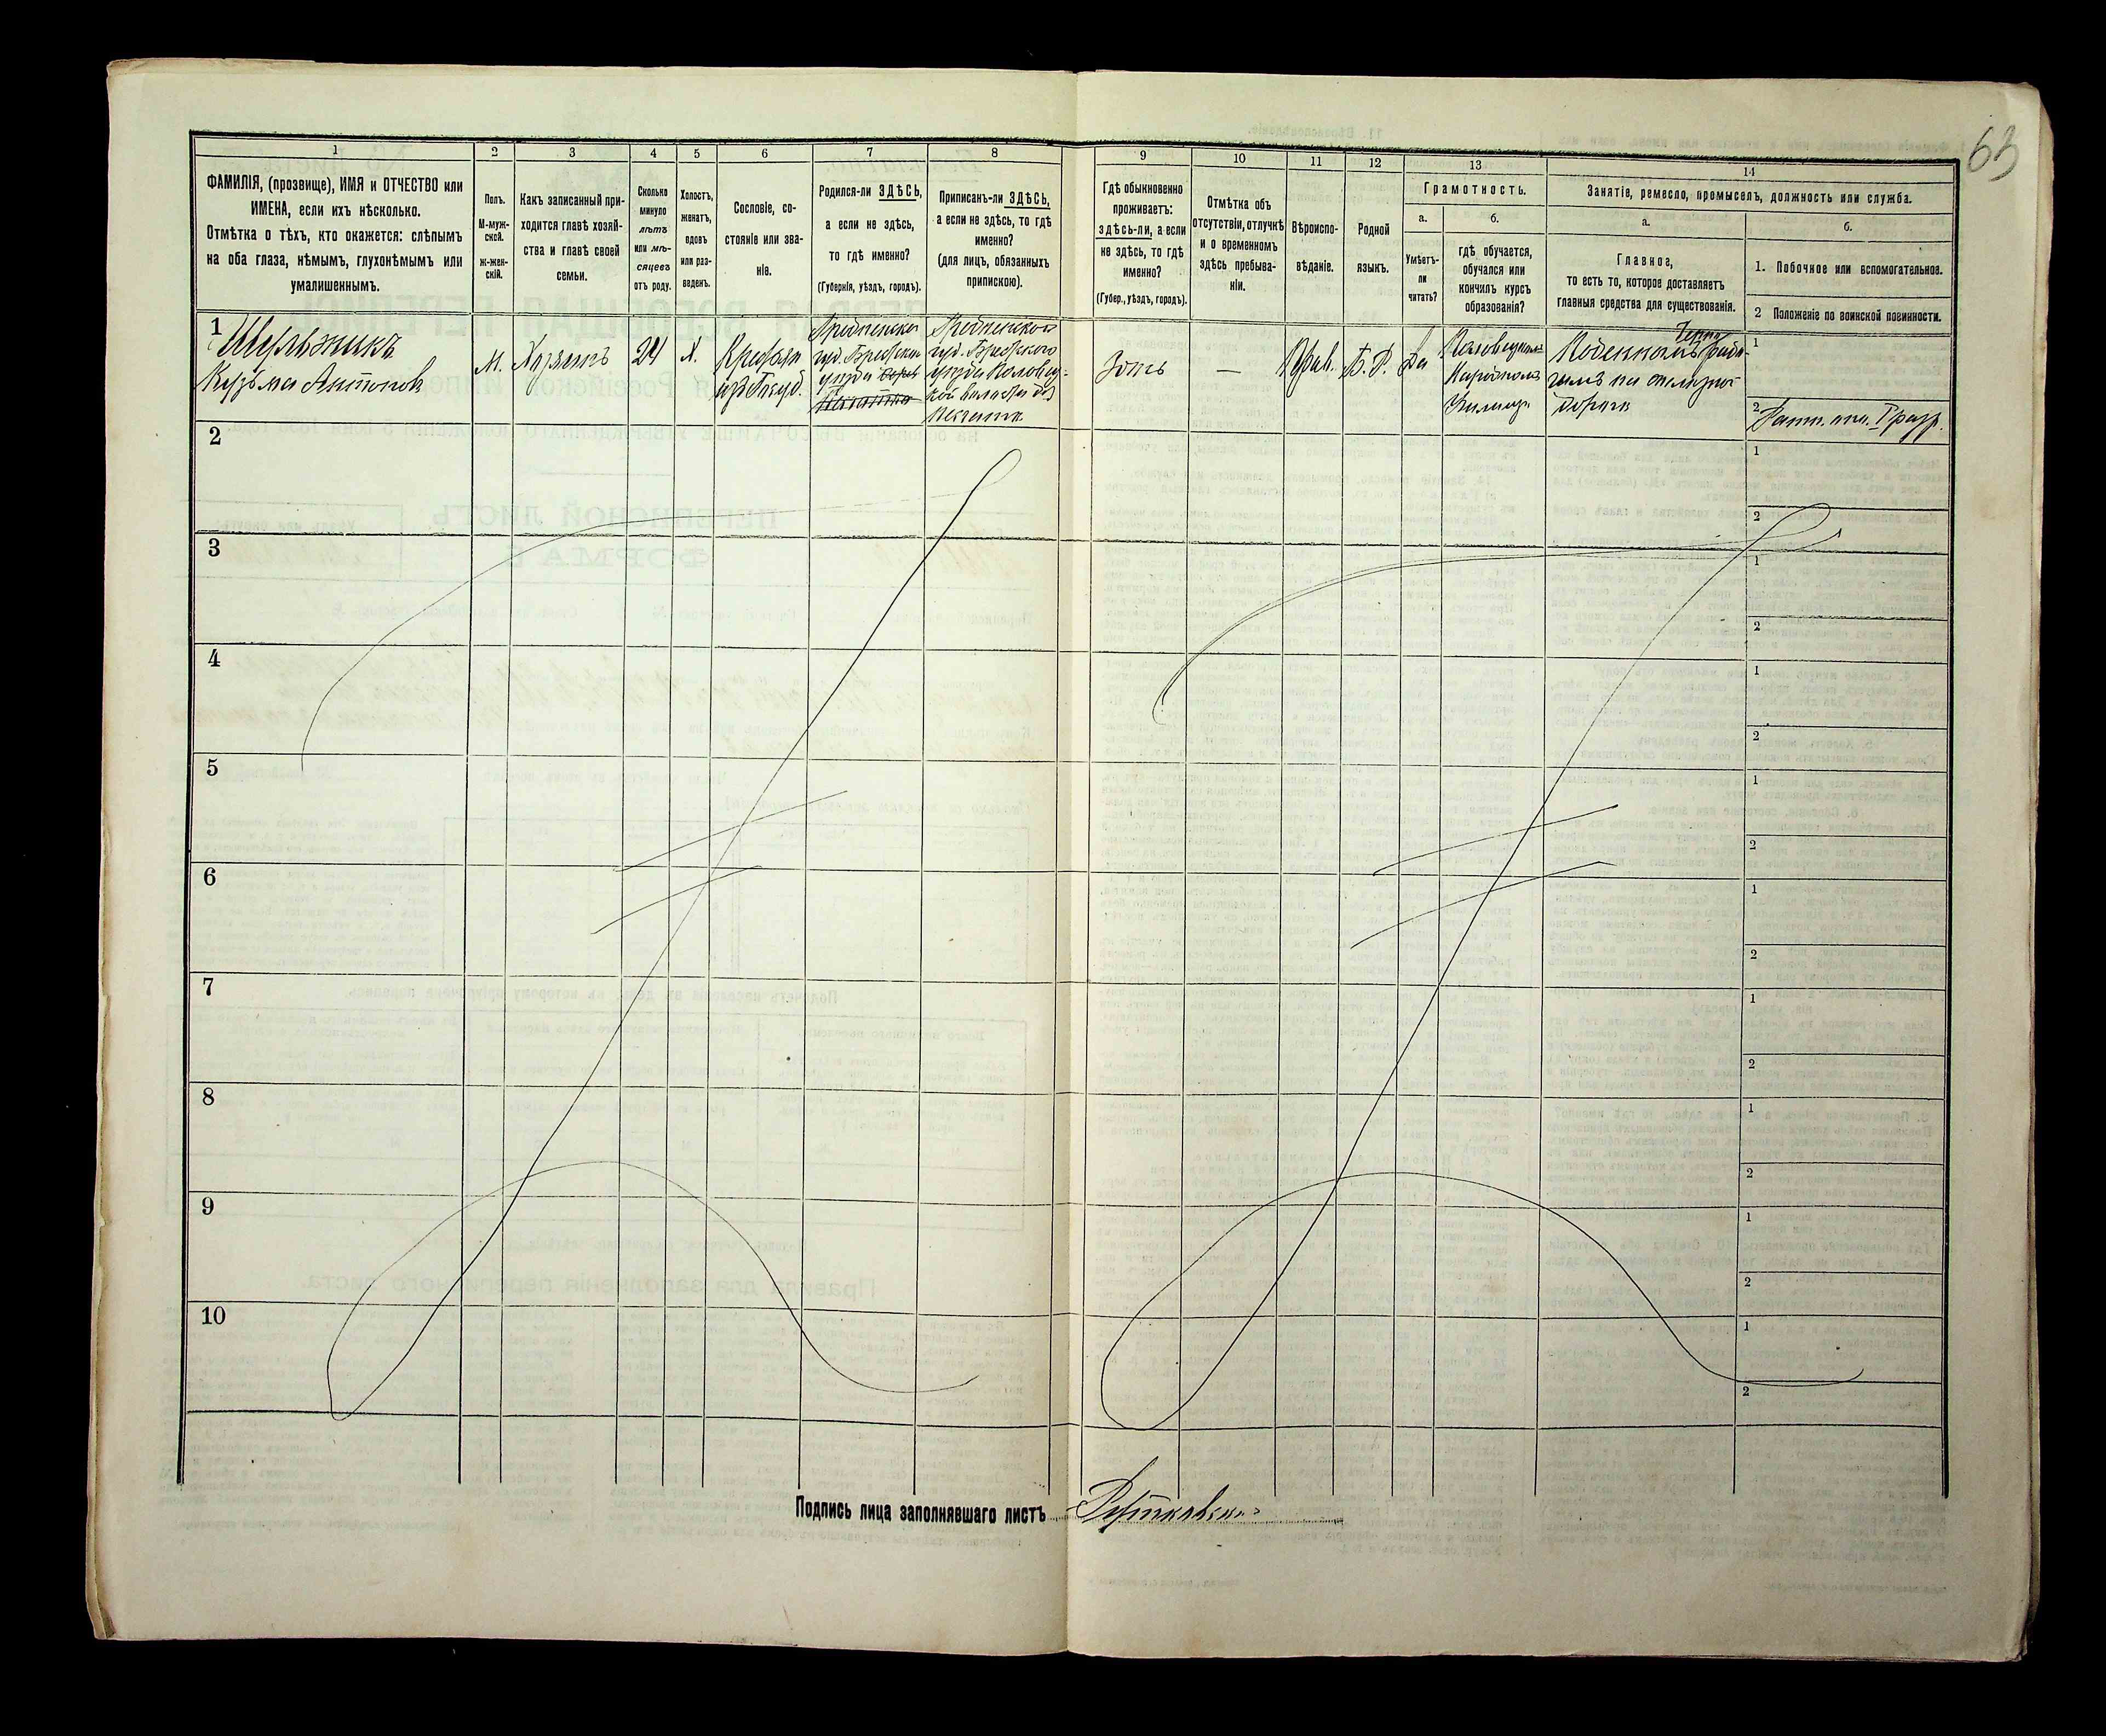 63
1 2 3 4 5 6 7 8 9 10 11 12 13 14
ФАМИЛІЯ, (прозвище), ИМЯ и ОТЧЕСТВО или
ИМЕНА, если ихъ нѣсколько.
Отмѣтка о тѣхъ, кто окажется: слѣпымъ
на оба глаза, нѣмымъ, глухонѣмымъ или
умалишеннымъ.
Полъ.
М-муж-
ской.
ж-жен-
скій.
Какъ записанный при-
ходится главѣ хозяй-
ства и главѣ своей
семьи.
Сколько
минуло
лѣтъ
или мѣ-
сяцевъ
отъ роду.
Холостъ,
женатъ,
вдовъ
или раз-
веденъ.
Сословіе, со-
стояніе или зва-
ніе.
Родился-ли ЗДѢСЬ,
а если не здѣсь,
то гдѣ именно?
(Губернія, уѣздъ, городъ).
Приписанъ-ли ЗДѢСЬ,
а если не здѣсь, то гдѣ
именно?
(для лицъ, обязанныхъ
припискою).
Гдѣ обыкновенно
проживаетъ:
здѣсь-ли, а если
не здѣсь, то гдѣ
именно?
(Губер., уѣздъ, городъ).
Отмѣтка объ
отсутствіи, отлучкѣ
и о временномъ
здѣсь пребыва-
ніи.
Вѣроиспо-
вѣданіе.
Родной
языкъ.
Грамотность.
а.
Умѣетъ-
ли
читать?
б.
гдѣ обучается,
обучался или
кончилъ курсъ
образованія?
Занятіе, ремесло, промыселъ, должность или служба.
а.
Главное,
то есть то, которое доставляетъ
главныя средства для существованія.
б.
1. Побочное или вспомогательное.
2 Положеніе по воинской повинности.
1
Кузьма Антоновъ
М.
Хозяинъ
24
Х.
Гродненской
губ. Брестскаго
уѣзда
Здѣсь
—
Прав.
Б. Р.
Да
Народномъ
Училищѣ
рабо-
чимъ на желѣзной
дорогѣ
1
2
2
1
2
3
1
2
4
1
2
5
1
2
6
1
2
7
1
2
8
1
2
9
1
2
10
1
2
Подпись лица заполнявшаго листъ